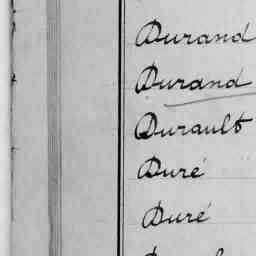 Durand
Durand
Durault
Duré
Duré